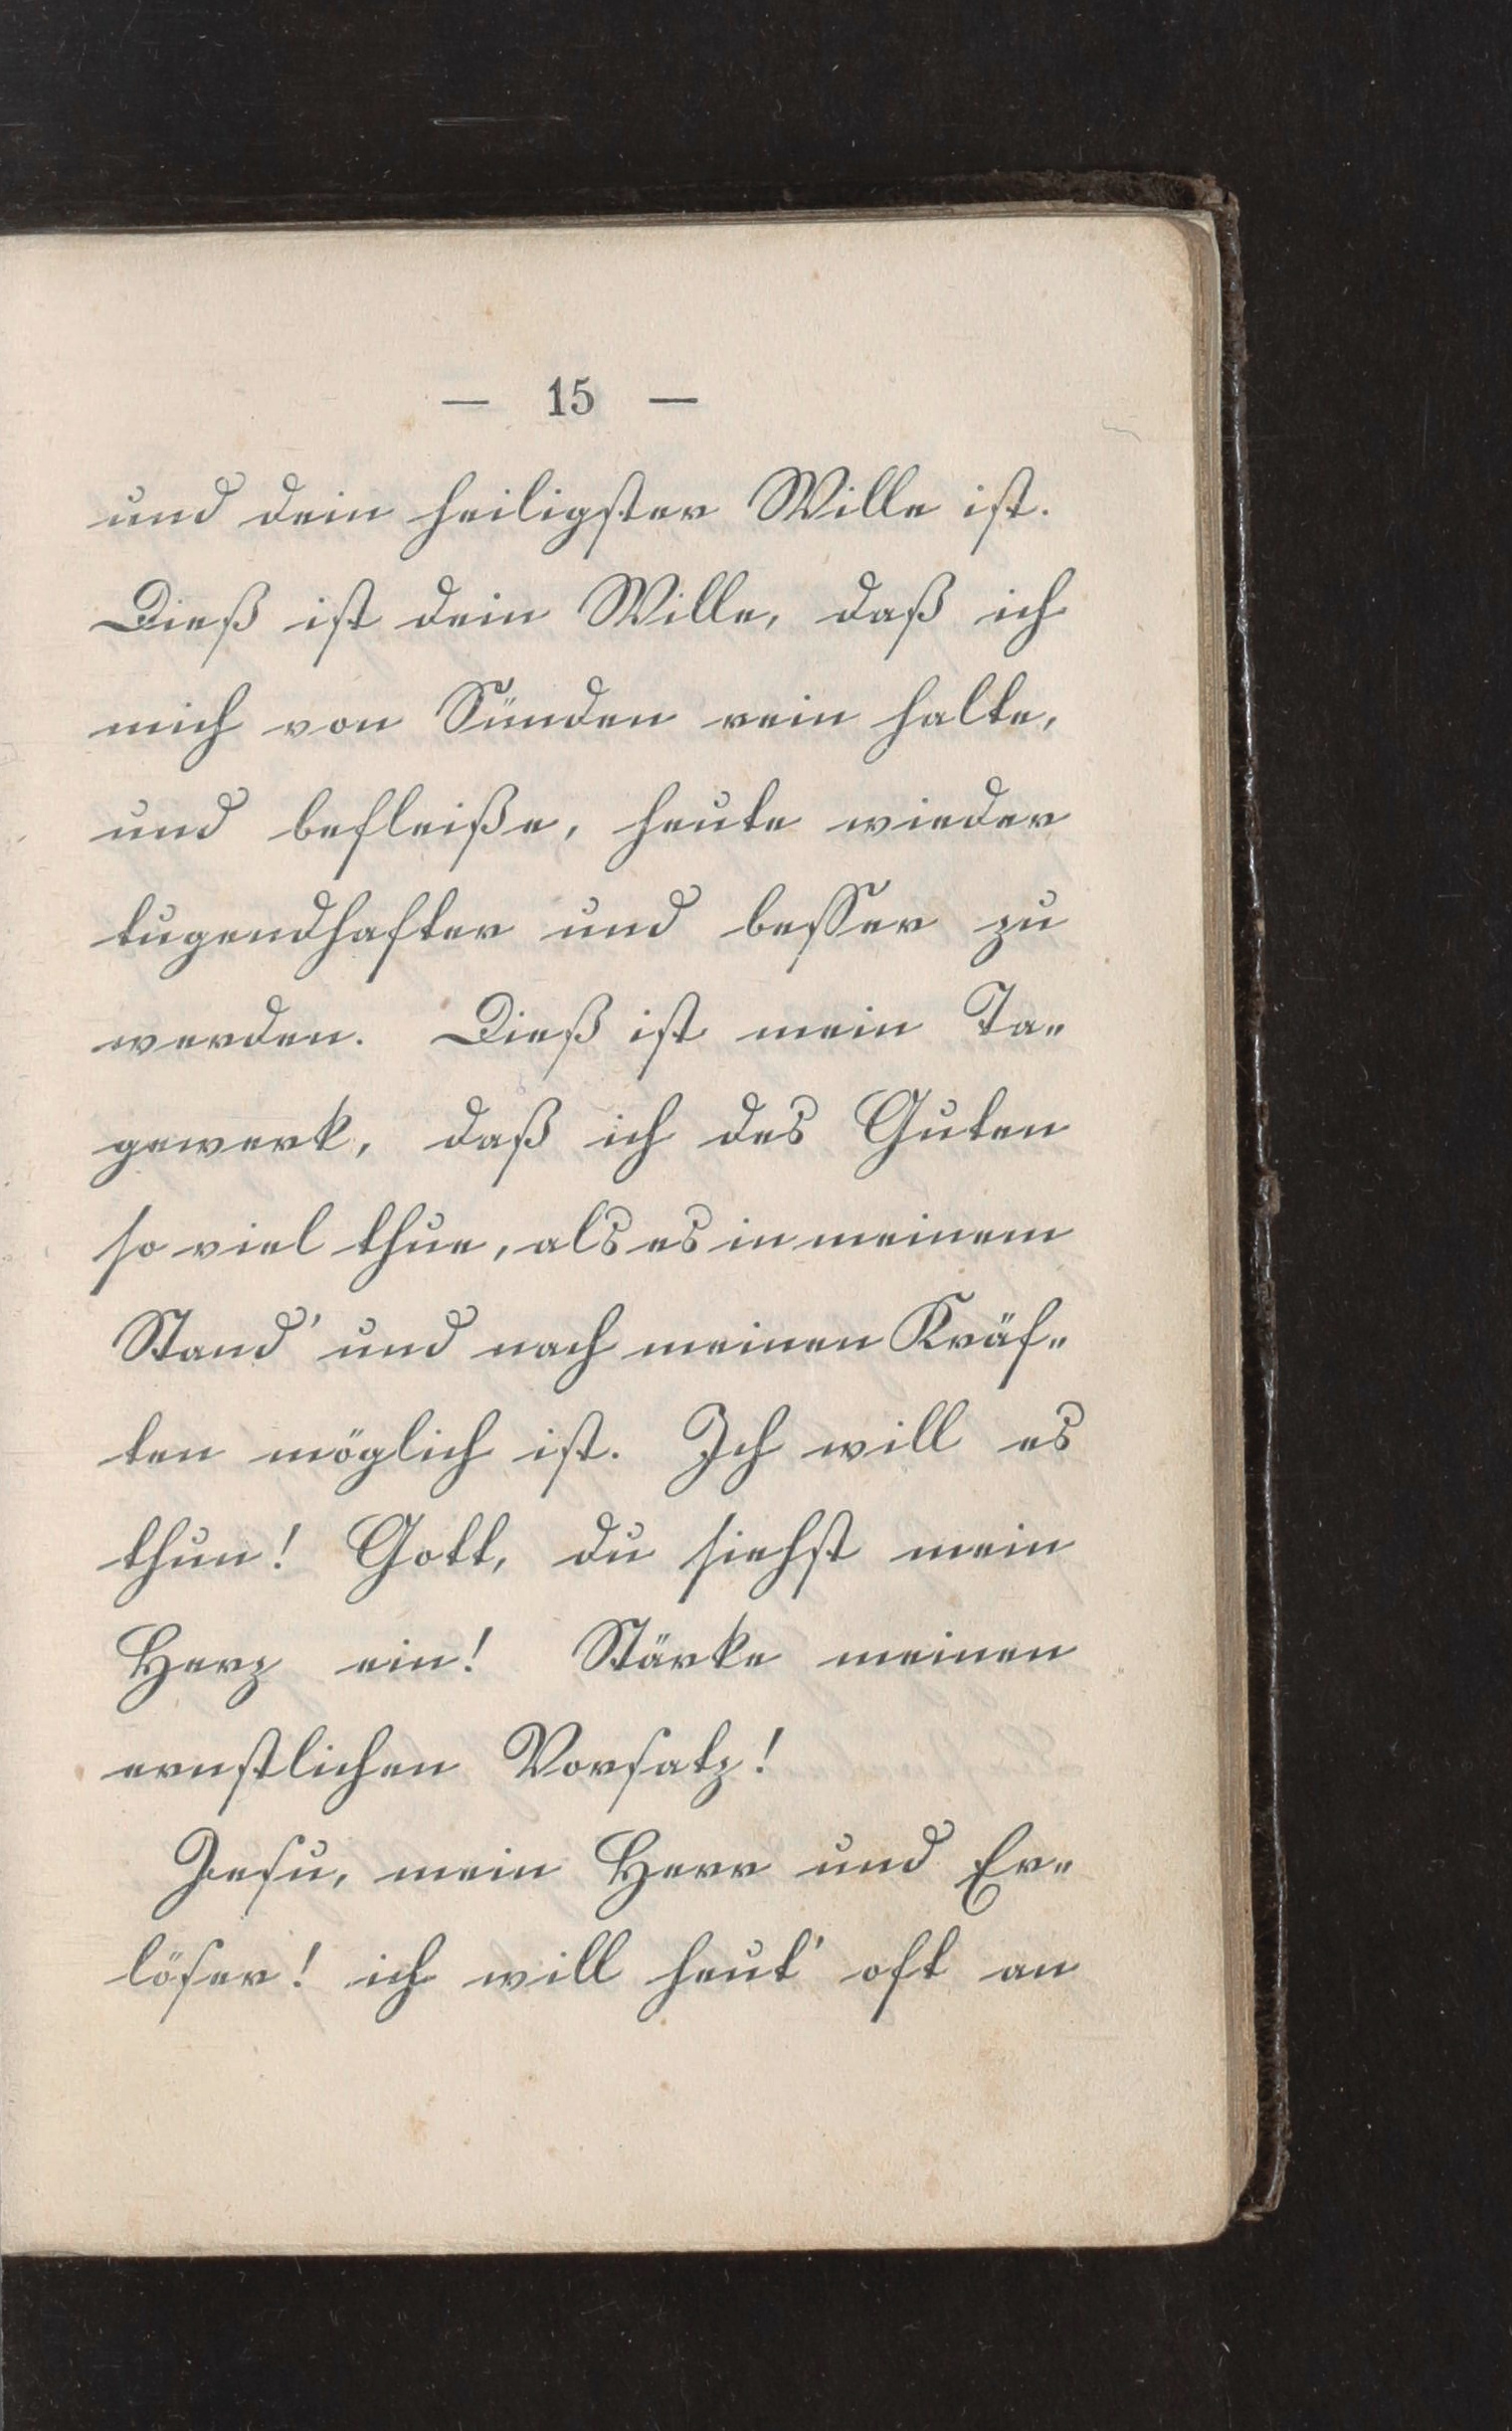 — 15 —
und dein heiligster Wille ist.
Dieß ist dein Wille, daß ich
mich von Sünden rein halte,
und befleiße, heute wieder
tugendhafter und besser zu
werden. Dieß ist mein Ta-
gewerk, daß ich des Guten
so viel thue, als es in meinem
Stand' und nach meinen Kräf-
ten möglich ist. Ich will es
thun! Gott, du siehst mein
Herz ein! Stärke meinen
ernstlichen Vorsatz!
Jesu, mein Herr und Er-
löser! ich will heut' oft an